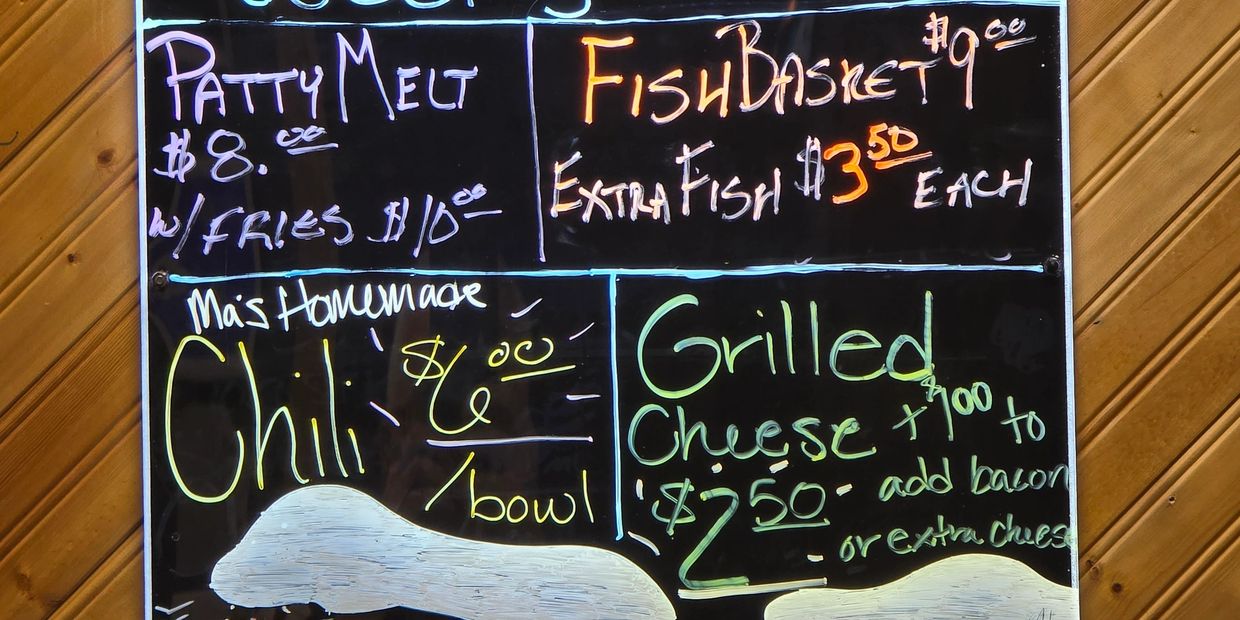 PATTY MELT
$8.00
w/FRIES $10.00
FISH BASKET $9.00
EXTRA FISH $3.50 EACH
Ma's Homemade
Chili $6.00
/bowl
Grilled
Cheese + $1.00 to
$2.50 add bacon
or extra cheese